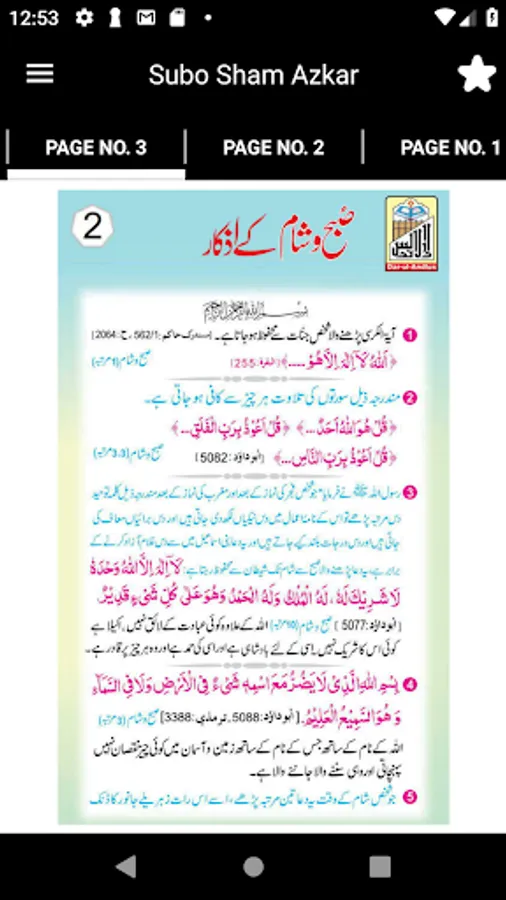 12:53
Subo Sham Azkar
PAGE NO. 3 PAGE NO. 2 PAGE NO. 1
2
صبح و شام کے اذکار
Dar-ul-Andlus
بسم اللہ الرحمن الرحیم
1 آیۃ الکرسی پڑھنے والا شخص جنات سے محفوظ ہو جاتا ہے۔ [مستدرک حاکم: 562/1، ح: 2064]
﴿اَللّٰهُ لَاۤ اِلٰهَ اِلَّا هُوَ ....﴾ [البقرة: 255] صبح و شام (1 مرتبہ)
2 مندرجہ ذیل سورتوں کی تلاوت ہر چیز سے کافی ہو جاتی ہے۔
﴿قُلْ هُوَ اللّٰهُ اَحَدٌ...﴾ ﴿قُلْ اَعُوْذُ بِرَبِّ الْفَلَقِ...﴾
﴿قُلْ اَعُوْذُ بِرَبِّ النَّاسِ...﴾ [ابوداؤد: 5082] صبح و شام (3،3 مرتبہ)
3 رسول اللہ ﷺ نے فرمایا: "جو شخص فجر کی نماز کے بعد اور مغرب کی نماز کے بعد مندرجہ ذیل کلمہ توحید
دس مرتبہ پڑھے تو اس کے نامۂ اعمال میں دس نیکیاں لکھ دی جاتی ہیں اور دس برائیاں معاف کی
جاتی ہیں اور دس درجات بلند کیے جاتے ہیں اور یہ دعا بنی اسماعیل میں سے دس غلام آزاد کرنے کے
برابر ہے، یہ دعا پڑھنے والا صبح سے شام تک شیطان سے محفوظ رہتا ہے: لَاۤ اِلٰهَ اِلَّا اللّٰهُ وَحْدَهٗ
لَا شَرِيْكَ لَهٗ، لَهُ الْمُلْكُ وَلَهُ الْحَمْدُ وَهُوَ عَلٰى كُلِّ شَيْءٍ قَدِيْرٌ۔
[ابوداؤد: 5077] صبح و شام (10 مرتبہ) اللہ کے علاوہ کوئی عبادت کے لائق نہیں، اکیلا ہے
کوئی اس کا شریک نہیں، اسی کے لئے بادشاہی ہے اور اسی کی حمد ہے اور وہ ہر چیز پر قادر ہے۔
4 بِسْمِ اللّٰهِ الَّذِيْ لَا يَضُرُّ مَعَ اسْمِهٖ شَيْءٌ فِي الْاَرْضِ وَلَا فِي السَّمَآءِ
وَهُوَ السَّمِيْعُ الْعَلِيْمُ۔ [ابوداؤد: 5088، ترمذی: 3388] صبح و شام (3 مرتبہ)
اللہ کے نام کے ساتھ جس کے نام کے ساتھ زمین و آسمان میں کوئی چیز نقصان نہیں
پہنچاتی اور وہی سننے والا جاننے والا ہے۔
5 جو شخص شام کے وقت یہ دعا تین مرتبہ پڑھے، اسے اس رات زہریلے جانور کا ڈنک